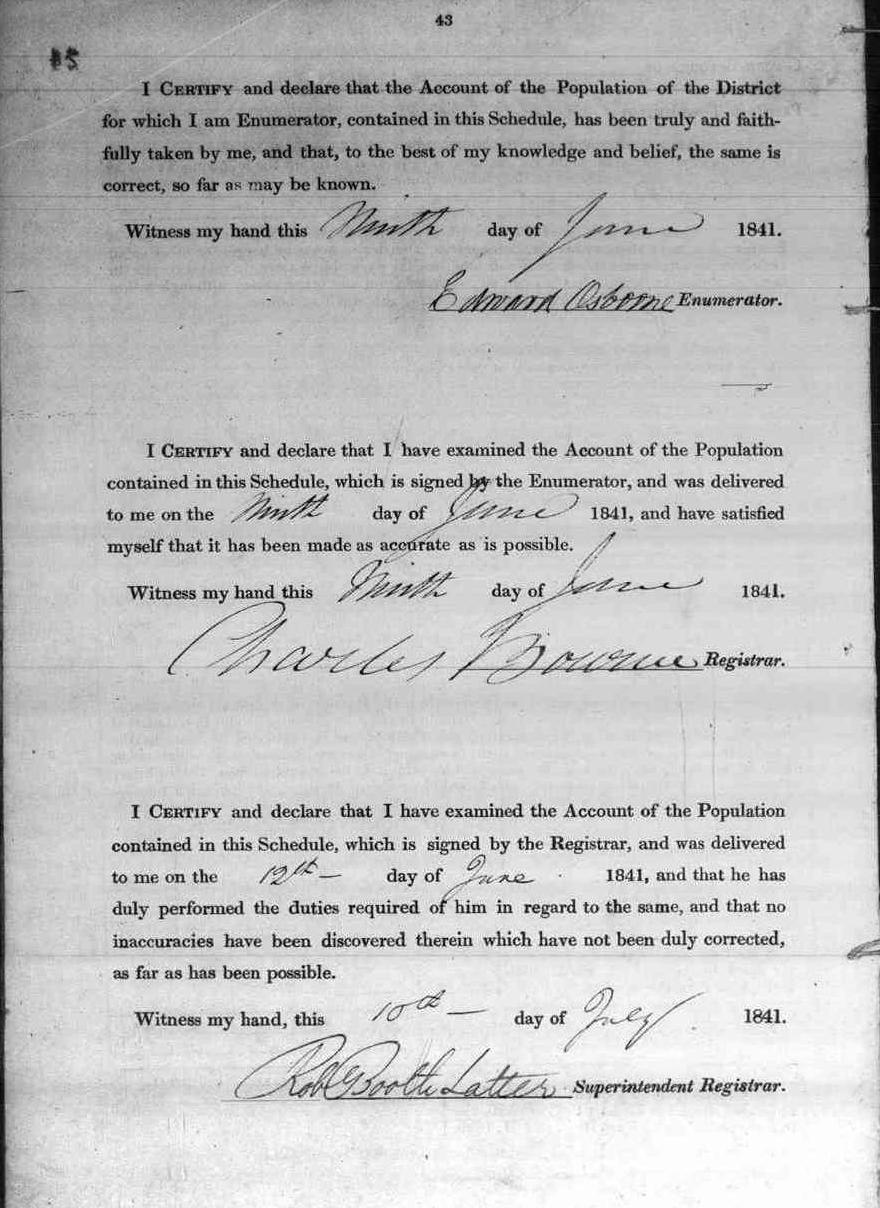 43
I CERTIFY and declare that the Account of the Population of the District
for which I am Enumerator, contained in this Schedule, has been truly and faith-
fully taken by me, and that, to the best of my knowledge and belief, the same is
correct, so far as may be known.
Witness my hand this Ninth day of June 1841.
Edward Osborne Enumerator.
I CERTIFY and declare that I have examined the Account of the Population
contained in this Schedule, which is signed by the Enumerator, and was delivered
to me on the Ninth day of June 1841, and have satisfied
myself that it has been made as accurate as is possible.
Witness my hand this Ninth day of June 1841.
Charles Bowne Registrar.
I CERTIFY and declare that I have examined the Account of the Population
contained in this Schedule, which is signed by the Registrar, and was delivered
to me on the 12th — day of June 1841, and that he has
duly performed the duties required of him in regard to the same, and that no
inaccuracies have been discovered therein which have not been duly corrected,
as far as has been possible.
Witness my hand, this 10th — day of July 1841.
Rob Booth Latter Superintendent Registrar.